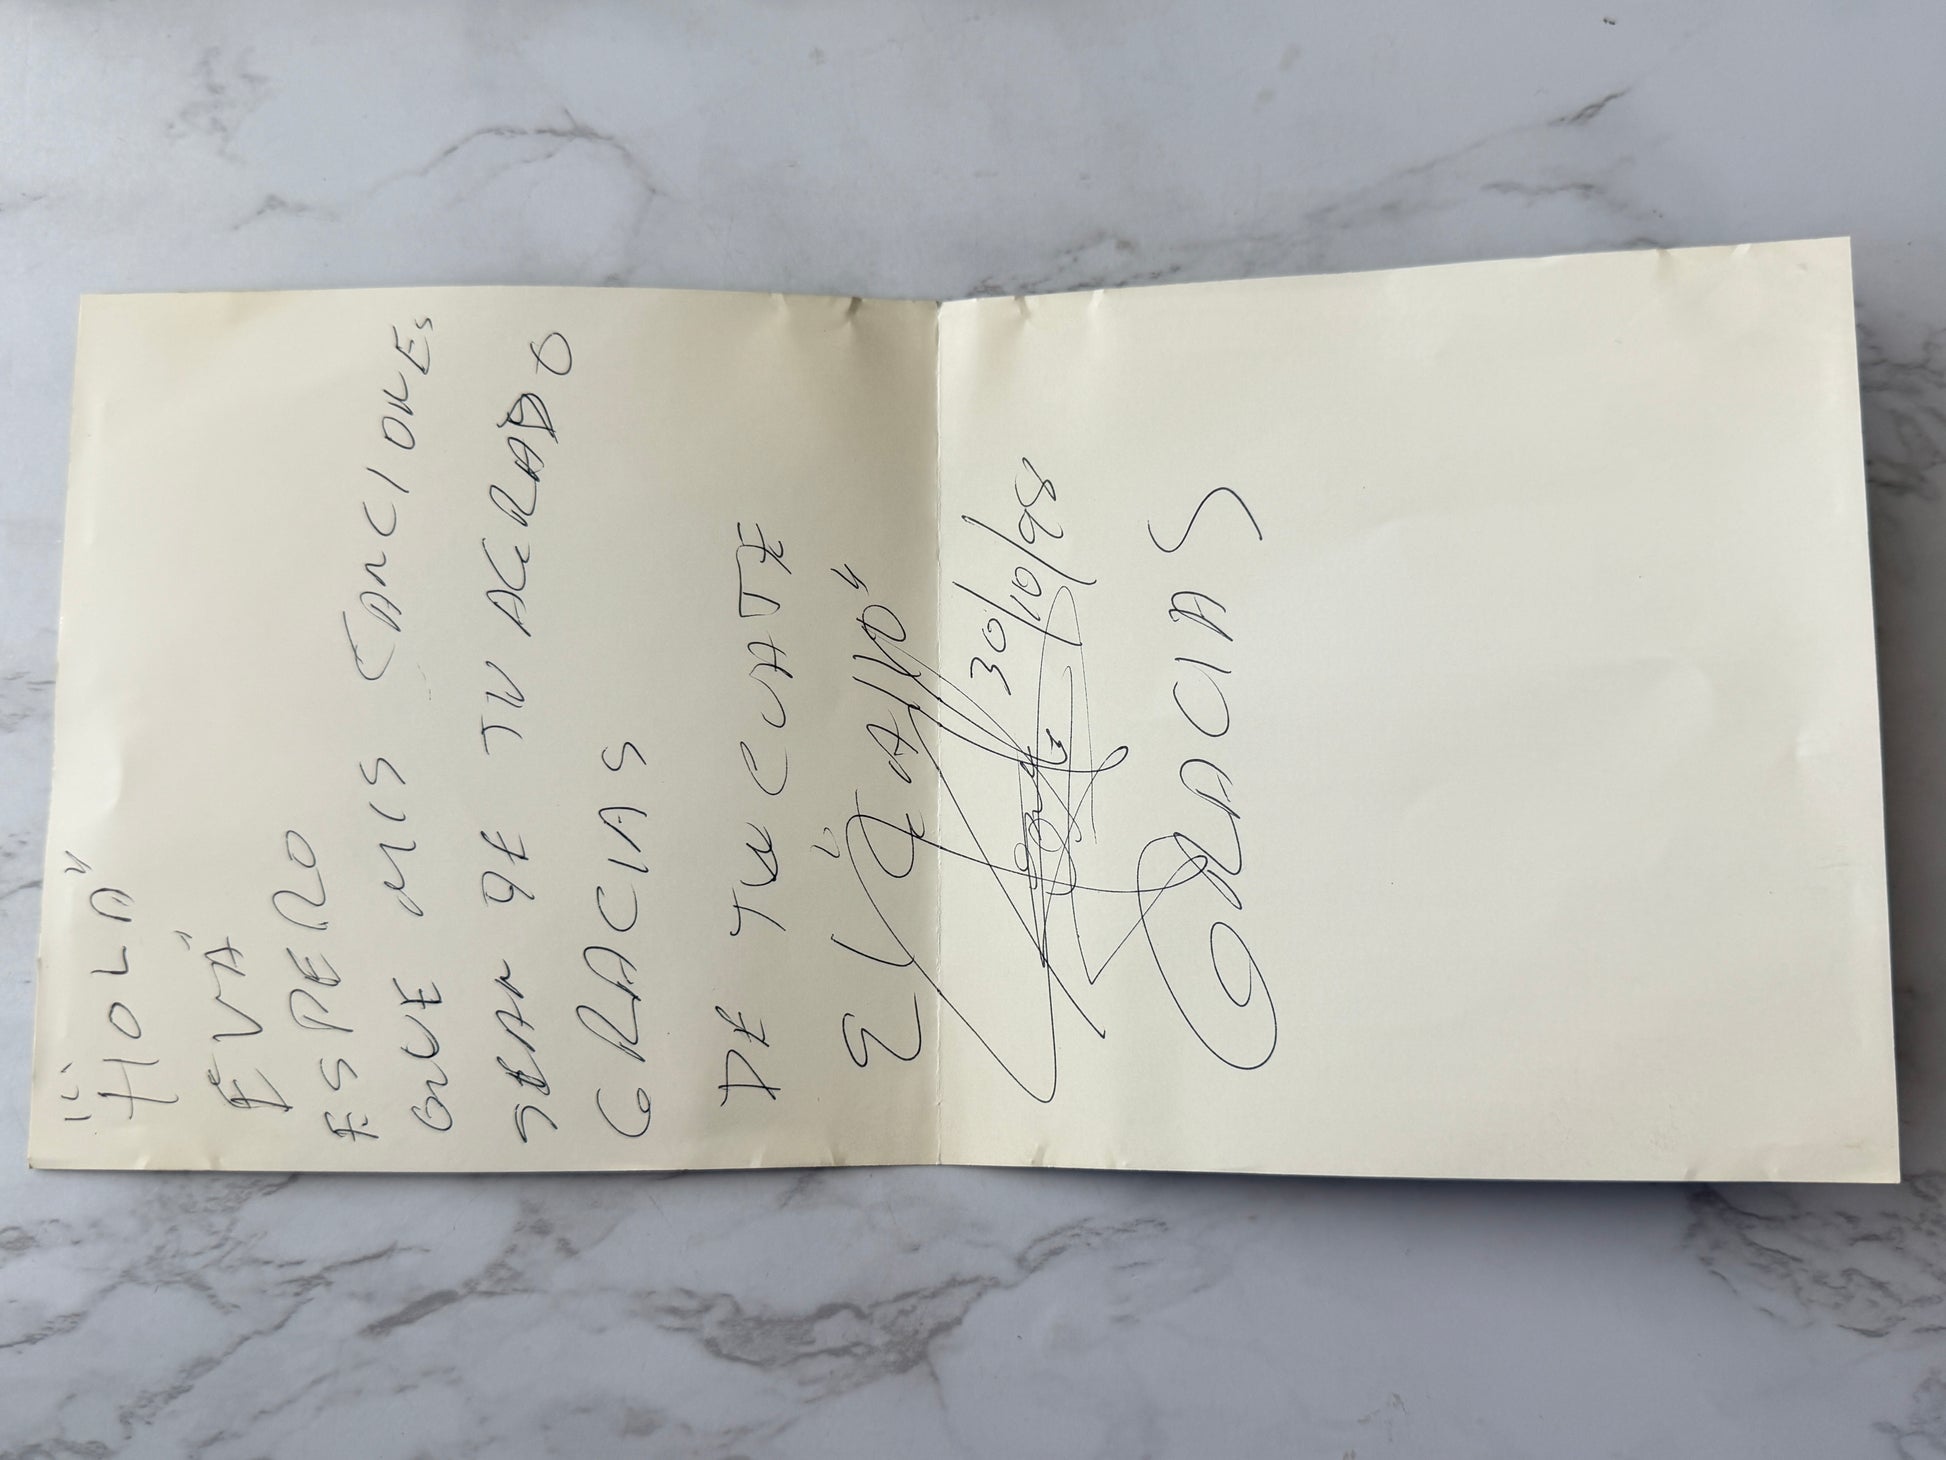 "HOLA"
EVA"
ESPERO
QUE MIS CANCIONES
SEAN DE TU AGRADO
GRACIAS
DE TU CUATE
El "GAllO"
30/10/98
GRACIAS